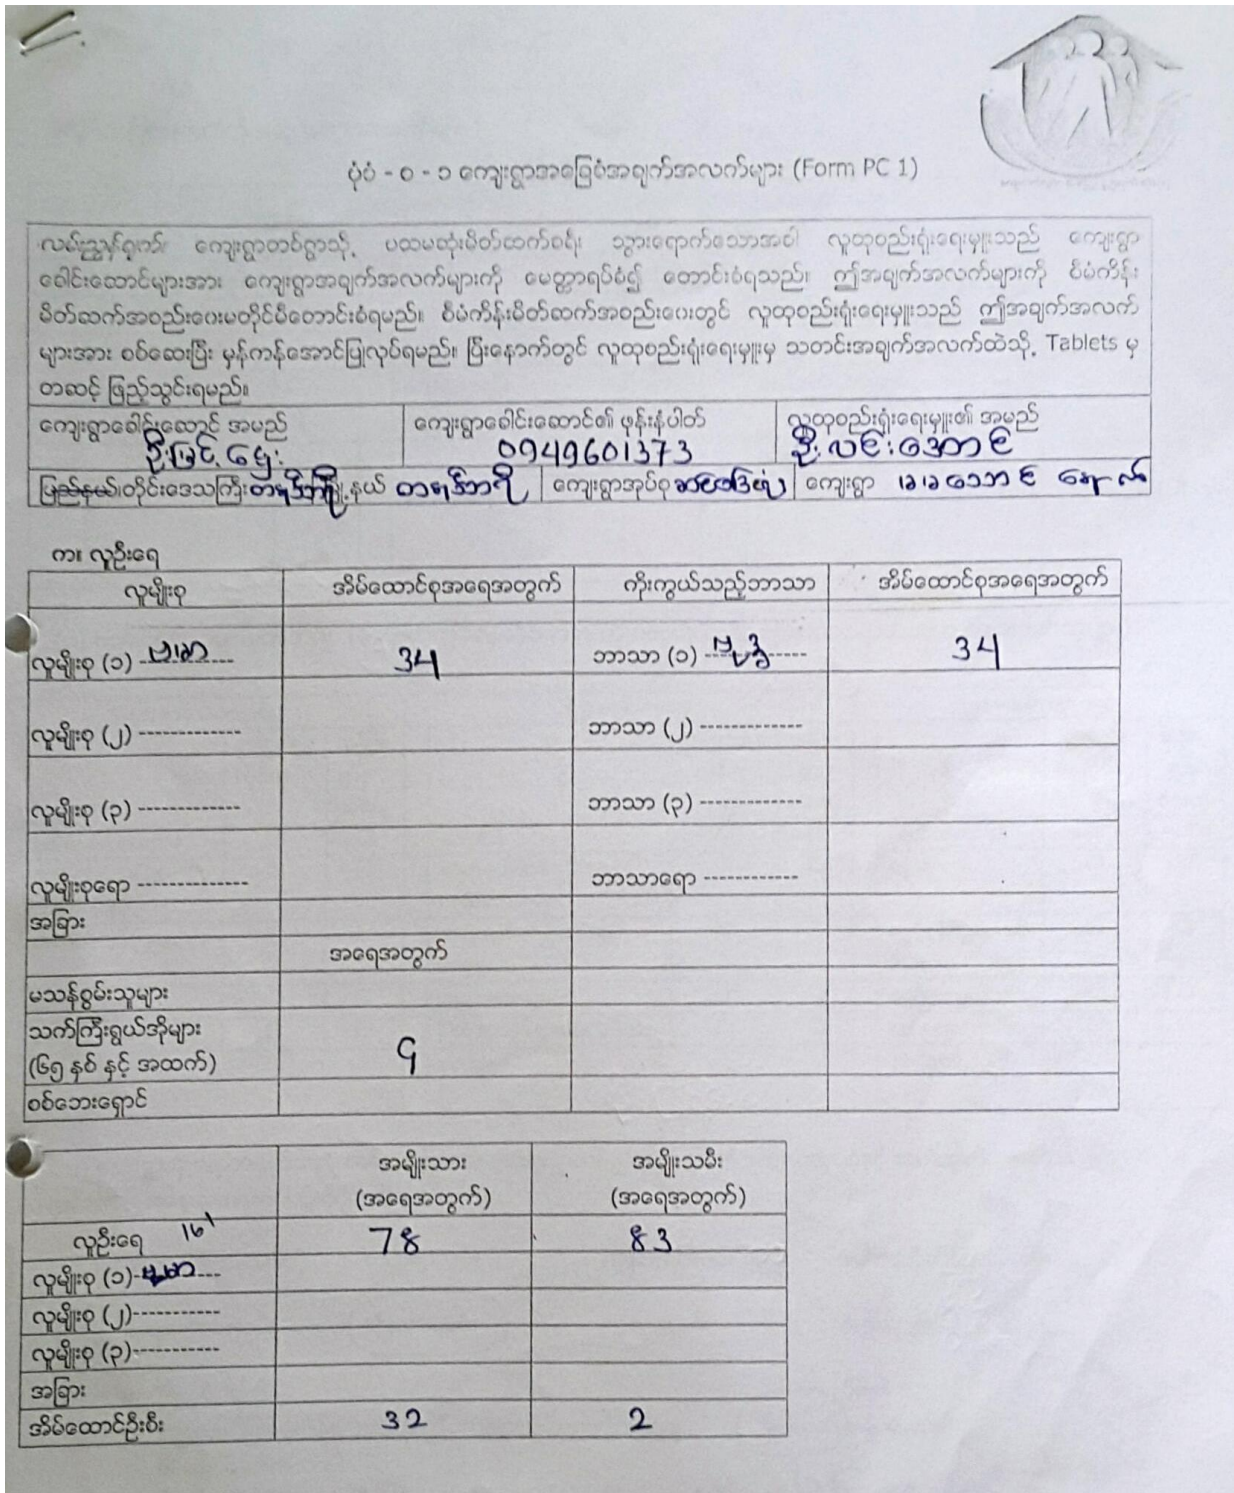 ပုံစံ - ၀ - ၁ ကျေးရွာအခြေခံအချက်အလက်များ (Form PC 1)
လမ်းညွှန်ချက်၊ ကျေးရွာတစ်ရွာသို့ ပထမဆုံးမိတ်ဆက်ခရီး သွားရောက်သောအခါ လူထုစည်းရုံးရေးမှူးသည် ကျေးရွာ
ခေါင်းဆောင်များအား ကျေးရွာအချက်အလက်များကို မေတ္တာရပ်ခံ၍ တောင်းခံရသည်။ ဤအချက်အလက်များကို စီမံကိန်း
မိတ်ဆက်အစည်းဝေးမတိုင်မီတောင်းခံရမည်။ စီမံကိန်းမိတ်ဆက်အစည်းဝေးတွင် လူထုစည်းရုံးရေးမှူးသည် ဤအချက်အလက်
များအား စစ်ဆေးပြီး မှန်ကန်အောင်ပြုလုပ်ရမည်။ ပြီးနောက်တွင် လူထုစည်းရုံးရေးမှူးမှ သတင်းအချက်အလက်ထဲသို့ Tablets မှ
တဆင့် ဖြည့်သွင်းရမည်။
ကျေးရွာခေါင်းဆောင် အမည် ကျေးရွာခေါင်းဆောင်၏ ဖုန်းနံပါတ် လူထုစည်းရုံးရေးမှူး၏ အမည်
ဦးမြင့်ဌေး 0949601373 ဦးလင်းအောင်
ပြည်နယ်/တိုင်းဒေသကြီး မြို့နယ် တနင်္သာရီ ကျေးရွာအုပ်စု ကျေးရွာ
က။ လူဦးရေ
လူမျိုးစု အိမ်ထောင်စုအရေအတွက် ကိုးကွယ်သည့်ဘာသာ အိမ်ထောင်စုအရေအတွက်
လူမျိုးစု (၁) ဗမာ 34 ဘာသာ (၁) ဗုဒ္ဓ 34
လူမျိုးစု (၂) ------------- ဘာသာ (၂) -------------
လူမျိုးစု (၃) ------------- ဘာသာ (၃) -------------
လူမျိုးစုရော -------------- ဘာသာရော ------------
အခြား
အရေအတွက်
မသန်စွမ်းသူများ
သက်ကြီးရွယ်အိုများ
(၆၅ နှစ် နှင့် အထက်) ၄
စစ်ဘေးရှောင်
အမျိုးသား အမျိုးသမီး
(အရေအတွက်) (အရေအတွက်)
လူဦးရေ 161 78 83
လူမျိုးစု (၁)-ဗမာ---
လူမျိုးစု (၂)-----------
လူမျိုးစု (၃)-----------
အခြား
အိမ်ထောင်ဦးစီး 32 2